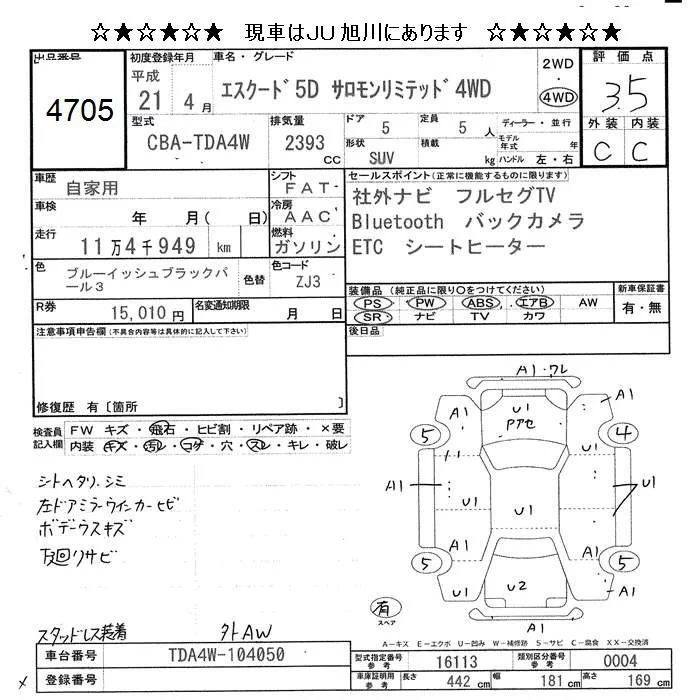 ☆★☆★☆★ 現車はJU旭川にあります ☆★☆★☆★
出品番号 初度登録年月 車名・グレード 2WD 評価点
4705 平成 21 4月 エスクード5D サロモンリミテッド4WD 4WD 3.5
型式 排気量 ドア 5 定員 5人 ディーラー・並行 外装 内装
CBA-TDA4W 2393 CC 形状 SUV 積載 kg モデル年式 年 ハンドル 左・右 C C
車歴 自家用 シフト FAT セールスポイント(正常に機能するものに限ります)
車検 年 月( 日) 冷房 AAC 社外ナビ フルセグTV
走行 11万4千949 km 燃料 ガソリン Bluetooth バックカメラ
ETC シートヒーター
色 ブルーイッシュブラックパール3 色替 色コード ZJ3
装備品(純正品に限り○をつけてください) 新車保証書
PS PW ABS エアB AW 有・無
SR ナビ TV カワ
R券 15,010円 名変通知期限 月 日
後日品
注意事項申告欄(不具合内容等は具体的に記入して下さい)
修復歴 有〔箇所 〕
検査員記入欄 FW キズ・飛石・ヒビ割・リペア跡・×要
内装 キズ・汚レ・コゲ・穴・スレ・キレ・破レ
シートヘタリ.シミ
左ドアミラーウインカーヒビ
ボデーウスキズ
下回リサビ
スタッドレス装着 外AW
A1・ワレ
A1 U1 A1
Pアセ
5 4
U1
A1 U1 U1 U1
A1 A1
5 5
U1 U2 U1
A1
有
スペア
A-キズ E-エクボ U-凹み W-補修跡 S-サビ C-腐食 XX-交換済
車台番号 TDA4W-104050 型式指定番号参考 16113 類別区分番号参考 0004
登録番号 車庫証明用参考 長さ 442 cm 幅 181 cm 高さ 169 cm